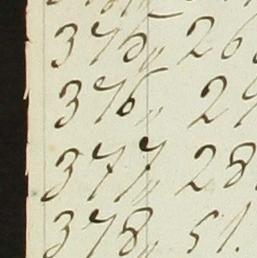 375 〃 26
376 〃 29
377 〃 28
378 〃 51.